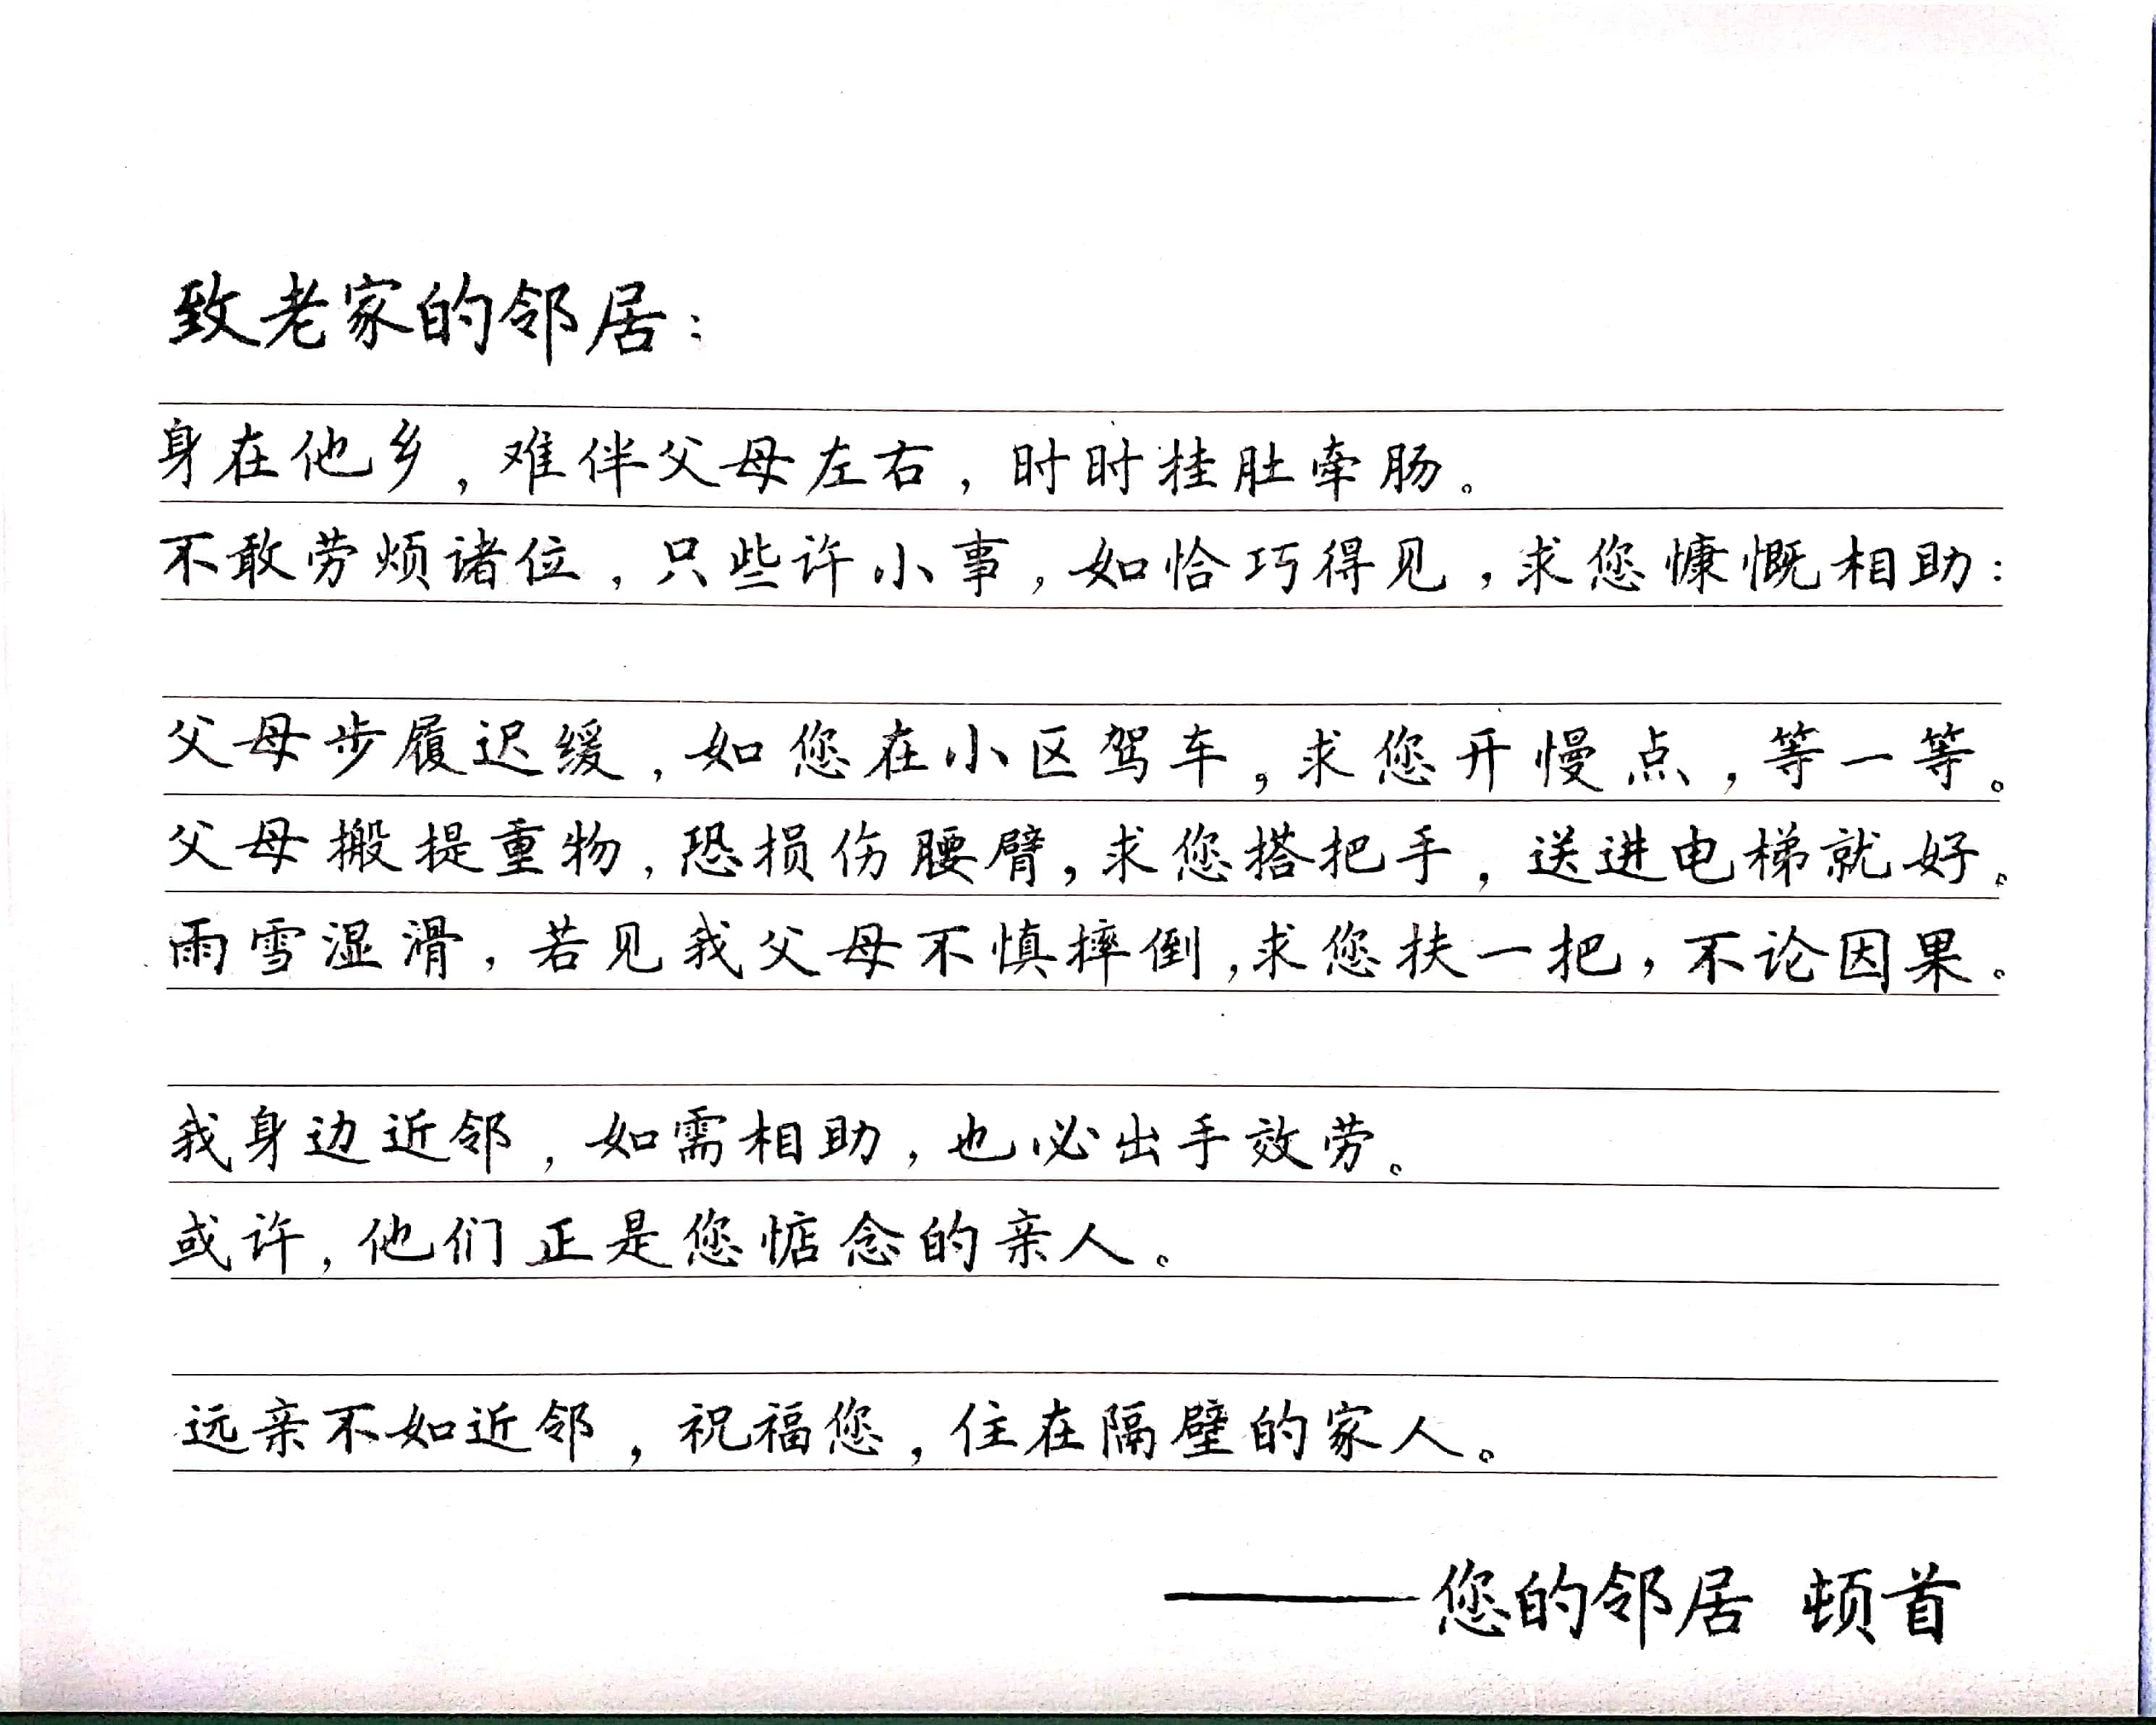 致老家的邻居：
身在他乡，难伴父母左右，时时挂肚牵肠。
不敢劳烦诸位，只些许小事，如恰巧得见，求您慷慨相助：
父母步履迟缓，如您在小区驾车，求您开慢点，等一等。
父母搬提重物，恐损伤腰臂，求您搭把手，送进电梯就好。
雨雪湿滑，若见我父母不慎摔倒，求您扶一把，不论因果。
我身边近邻，如需相助，也必出手效劳。
或许，他们正是您惦念的亲人。
远亲不如近邻，祝福您，住在隔壁的家人。
——您的邻居 顿首